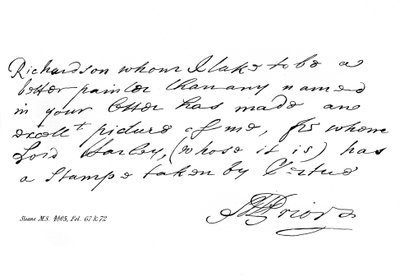 Richardson whom I take to be a
better painter than any named
in your letter has made an
excellt picture of me, frō whom
Lord Harley, (whose it is) has
a Stamp taken by Vertue
MPrior
Sloane M.S. 4065, Fol. 67 & 72